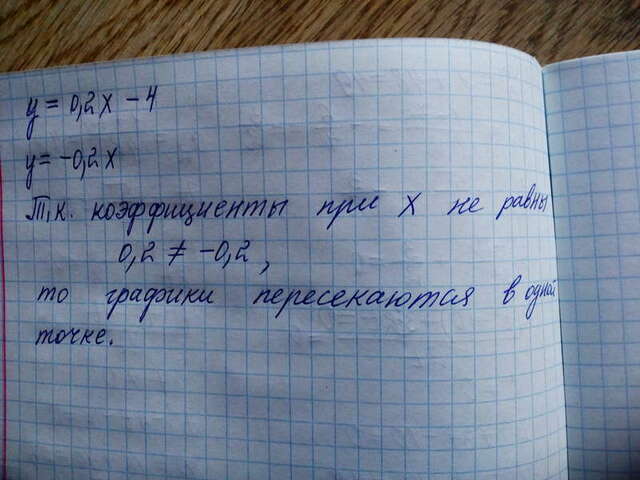 y = 0,2x - 4
y = -0,2x
Т.к. коэффициенты при x не равны
0,2 ≠ -0,2,
то графики пересекаются в одной
точке.